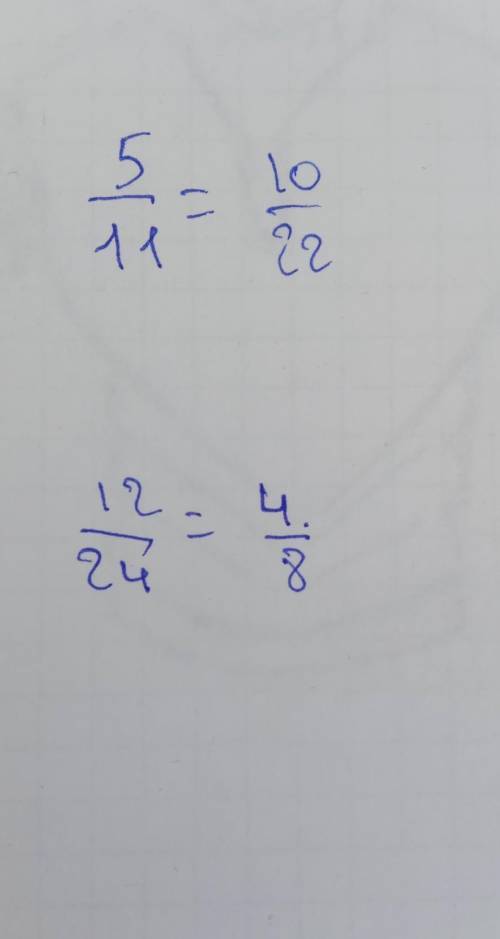 5/11 = 10/22
12/24 = 4/8